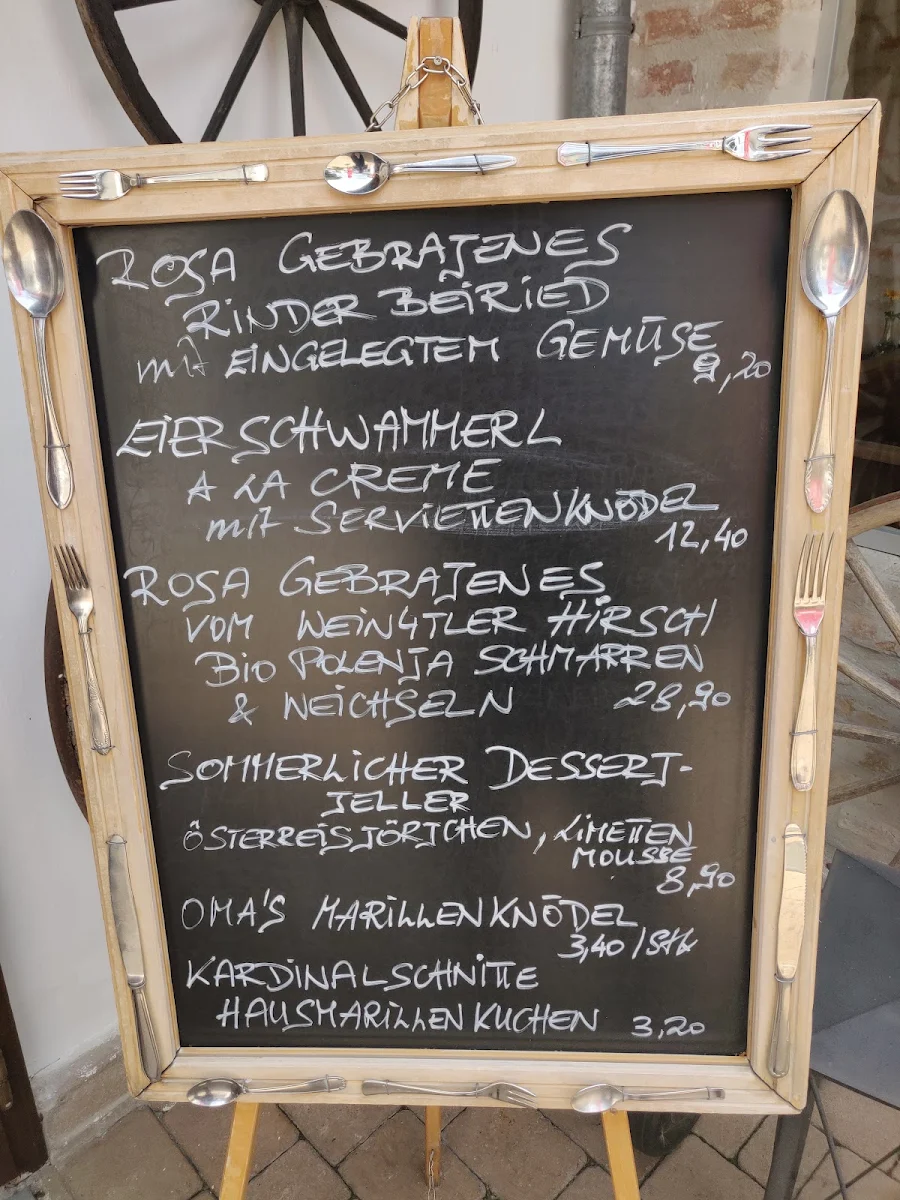 ROSA GEBRATENES
RINDER BEIRIED
mit EINGELEGTEM GEMÜSE
9,20
EIERSCHWAMMERL
A LA CREME
mit SERVIETTENKNÖDEL
12,40
ROSA GEBRATENES
VOM WEIN4TLER HIRSCH
Bio POLENTA SCHMARREN
& WEICHSELN 28,90
SOMMERLICHER DESSERT-
TELLER
ÖSTERREISTÖRTCHEN, LIMETTEN
MOUSSE
8,90
OMA'S MARILLENKNÖDEL
3,40 /Stk
KARDINALSCHNITTE
HAUSMARILLENKUCHEN 3,20